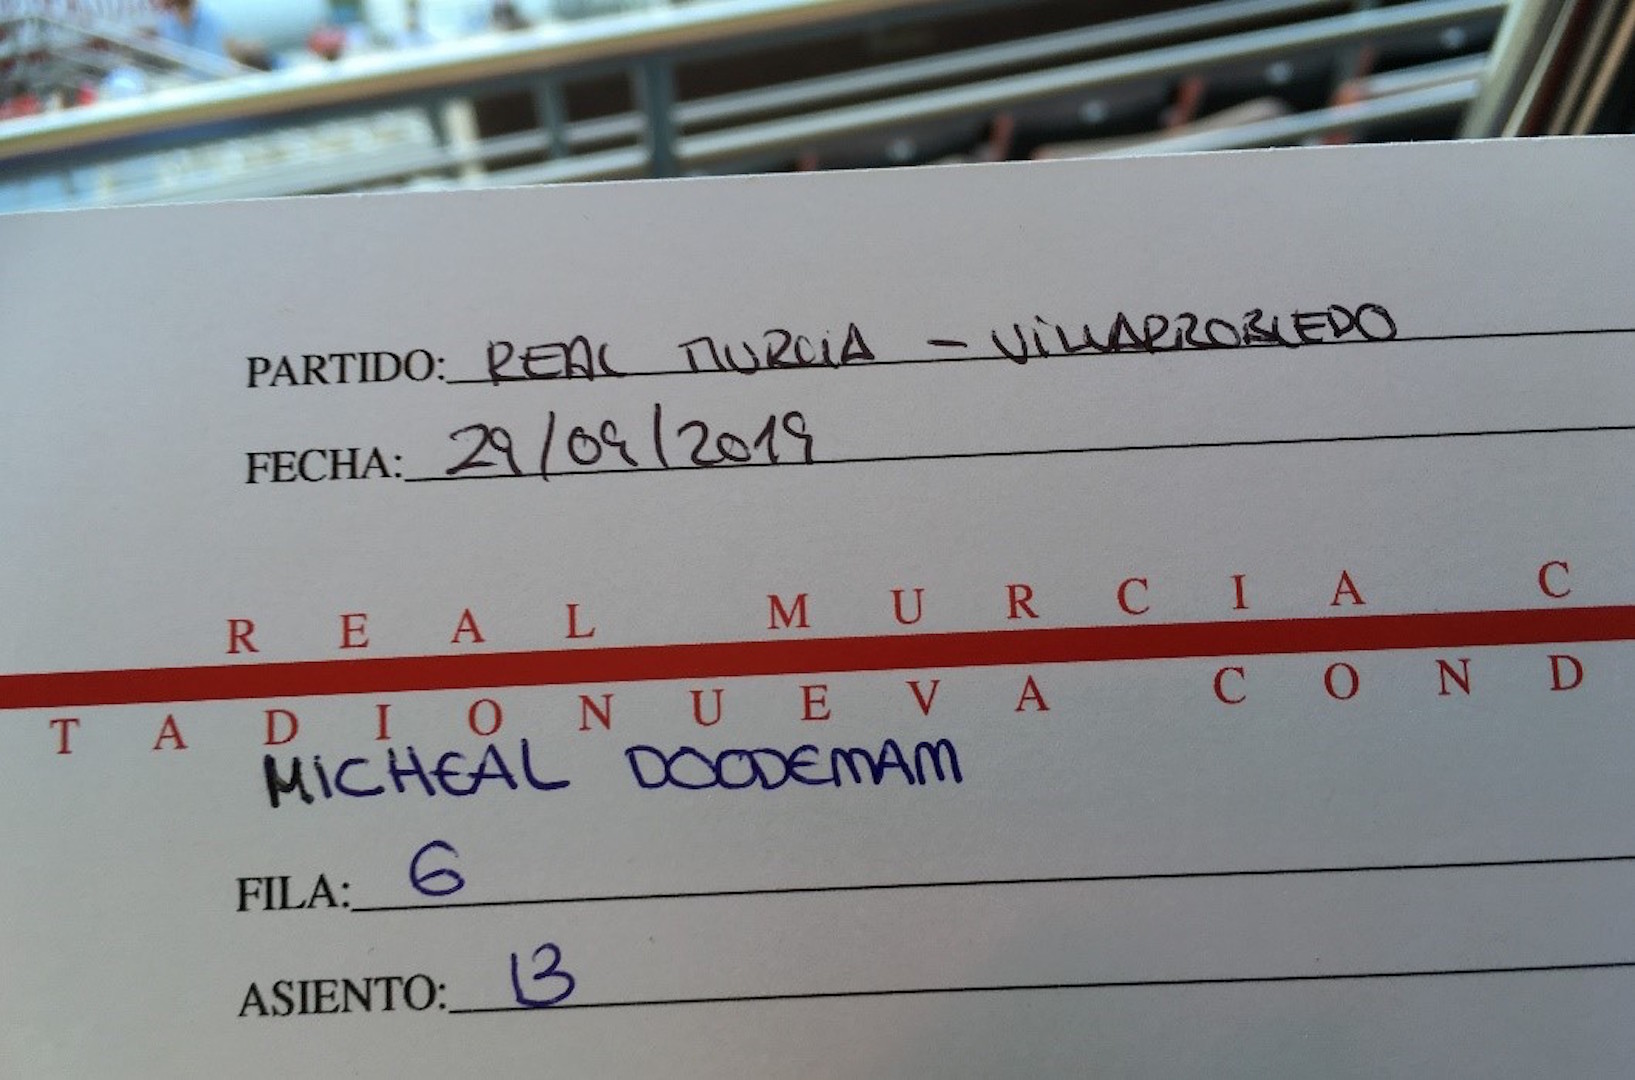 PARTIDO: REAL MURCIA - VILLARROBLEDO
FECHA: 29/09/2019
REAL MURCIA C
TADIO NUEVA COND
MICHEAL DOODEMAM
FILA: 6
ASIENTO: 13